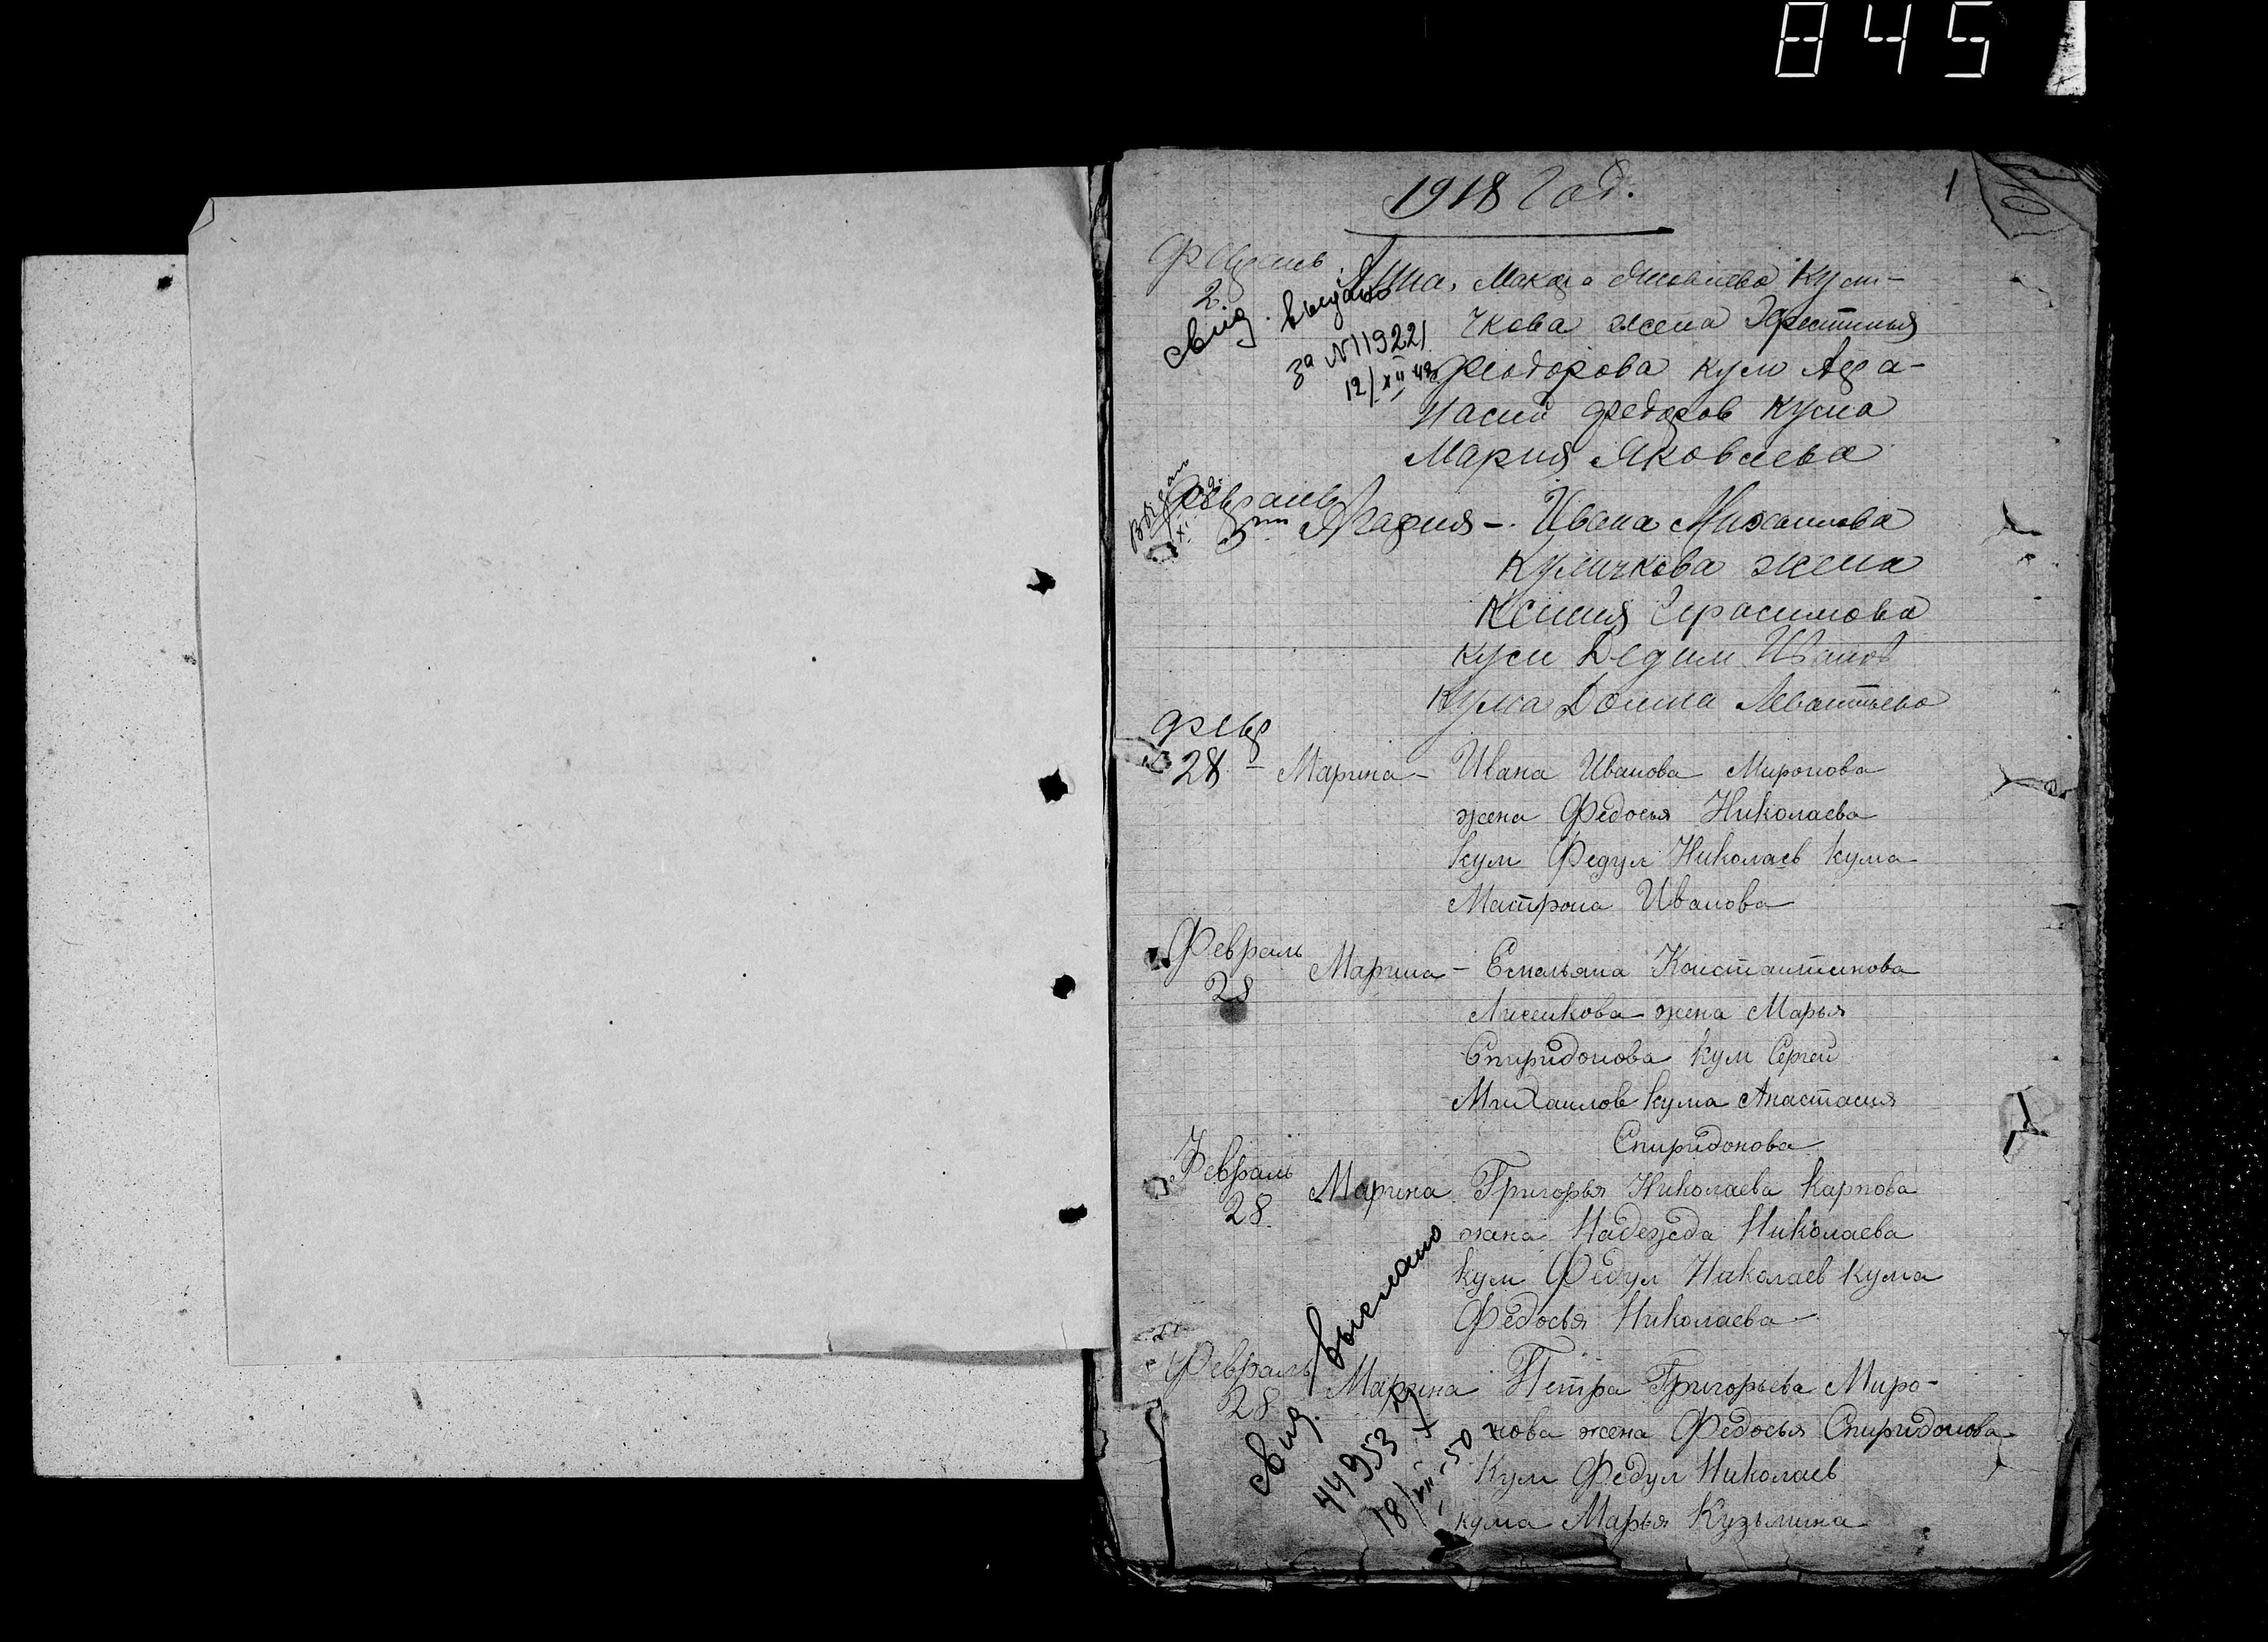 845
1918 Год.
1
2.
Анна, Макара Яковлева Кули-
чкова жена Эфестинья
свид. выдано
за №119221
12/XII 42
Феодорова кум Афа-
насий Федоров кума
Мария Яковлева
Февраль
5 Агафия - Ивана Михаилова
Куличкова жена
Ксения Герасимова
кум Иванов
кума Домна
Февр
28 - Марина - Ивана Иванова Миронова
жена Федосья Николаева
кум Федул Николаев кума
Матрона Иванова
Февраль
28
Марина - Емельяна Константинова
Лисенкова жена Марья
Спиридонова кум Сергей
Михаилов кума Анастасия
Спиридонова
Февраль
28.
Марина Григорья Николаева Карпова
жена Надежда Николаева
кум Федул Николаев кума
Федосья Николаева
Февраль
28
Марина Петра Григорьева Миро-
нова жена Федосья Спиридонова
Кум Федул Николаев
кума Марья Кузьмина
свид. выслано
44953
18/VII-50